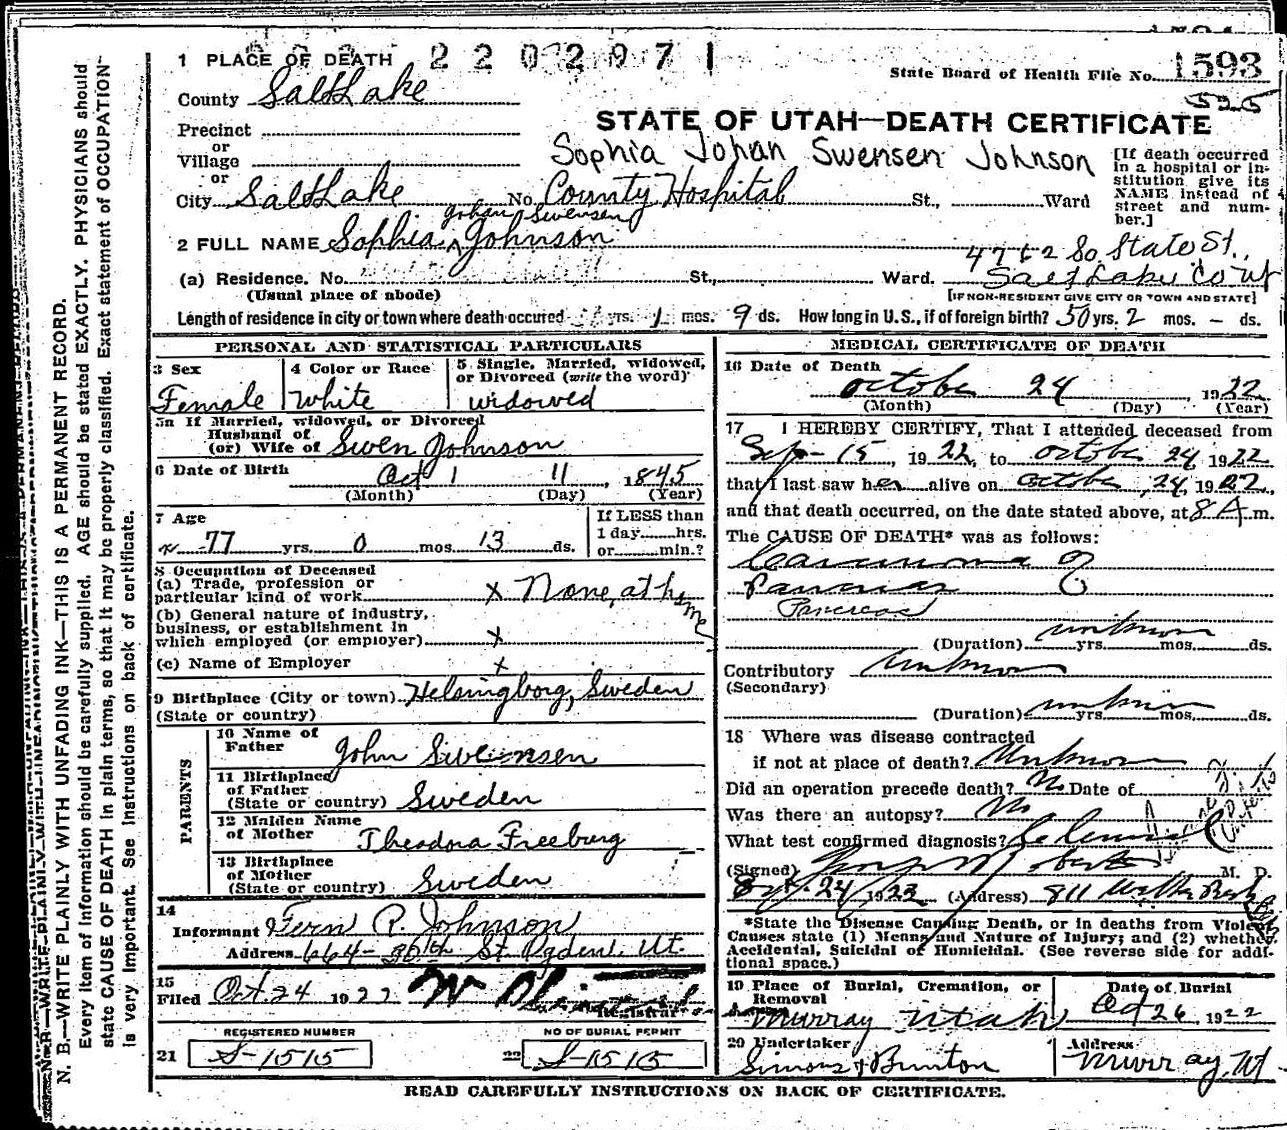 1 PLACE OF DEATH 2202971
State Board of Health File No. 1593
525
County Salt Lake
STATE OF UTAH—DEATH CERTIFICATE
Precinct
or
Village
or
Sophia Johan Swensen Johnson
[If death occurred in a hospital or institution give its NAME instead of street and number.]
City Salt Lake No. County Hospital St., Ward
Johan Swensen
2 FULL NAME Sophia ^ Johnson
4762 So. State St.,
(a) Residence. No. St., Ward. Salt Lake Co Ut
(Usual place of abode)
[IF NON-RESIDENT GIVE CITY OR TOWN AND STATE]
Length of residence in city or town where death occured yrs. 1 mos. 9 ds. How long in U.S., if of foreign birth? 50 yrs. 2 mos. - ds.
PERSONAL AND STATISTICAL PARTICULARS
3 Sex
Female
4 Color or Race
White
5 Single, Married, widowed, or Divorced (write the word)
widowed
5a If Married, widowed, or Divorced
Husband of
(or) Wife of Swen Johnson
6 Date of Birth Oct 11, 1845
(Month) (Day) (Year)
7 Age
77 yrs. 0 mos. 13 ds.
If LESS than
1 day hrs.
or min.?
8 Occupation of Deceased
(a) Trade, profession or
particular kind of work x None, at home
(b) General nature of industry,
business, or establishment in
which employed (or employer) x
(c) Name of Employer x
9 Birthplace (City or town) Helsingborg, Sweden
(State or country)
PARENTS
10 Name of
Father John Swensen
11 Birthplace
of Father
(State or country) Sweden
12 Maiden Name
of Mother Theadora Freeburg
13 Birthplace
of Mother
(State or country) Sweden
14
Informant Fern P. Johnson
Address 664-30th St. Ogden, Ut.
15
Filed Oct 24 1922
Registrar
REGISTERED NUMBER
21 S-1515
NO OF BURIAL PERMIT
22 S-1515
MEDICAL CERTIFICATE OF DEATH
16 Date of Death
October 24, 1922
(Month) (Day) (Year)
17 I HEREBY CERTIFY, That I attended deceased from
Sep- 15, 1922, to October 24, 1922
that I last saw her alive on October, 24, 1922,
and that death occurred, on the date stated above, at 8 A. m.
The CAUSE OF DEATH* was as follows:
Carcinoma of
Pancreas
Pancreas
unknown
(Duration) yrs. mos. ds.
Contributory Unknown
(Secondary)
unknown
(Duration) yrs. mos. ds.
18 Where was disease contracted
if not at place of death? Unknown
Did an operation precede death? No Date of
Was there an autopsy? No
What test confirmed diagnosis?
(Signed) M. D.
24, 1922 (Address) 811
*State the Disease Causing Death, or in deaths from Violent
Causes state (1) Means and Nature of Injury; and (2) whether
Accidental, Suicidal or Homicidal. (See reverse side for additional space.)
19 Place of Burial, Cremation, or Removal
Murray Utah
Date of Burial
Oct 26, 1922
20 Undertaker
Simons & Brunton
Address
Murray, Ut
READ CAREFULLY INSTRUCTIONS ON BACK OF CERTIFICATE.
N. B.—WRITE PLAINLY WITH UNFADING INK—THIS IS A PERMANENT RECORD.
Every item of information should be carefully supplied. AGE should be stated EXACTLY. PHYSICIANS should
state CAUSE OF DEATH in plain terms, so that it may be properly classified. Exact statement of OCCUPATION
is very important. See instructions on back of certificate.